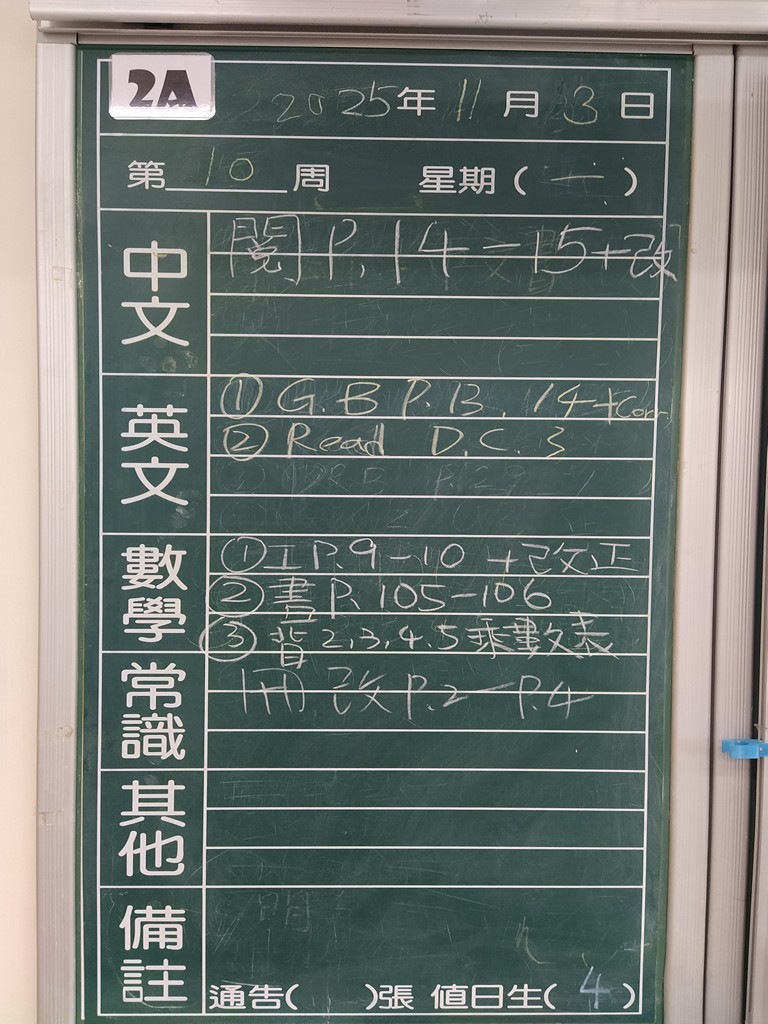 2A
2025年11月3日
第10周 星期(一)
中文
閱 P.14-15+改
英文
① G.B P.13, 14 +Corr.
② Read D.C. 3
數學
① I P.9-10 +改正
② 書 P. 105-106
③ 背 2,3,4.5 乘數表
常識
冊 改 P.2-P.4
其他
備註
通告( )張 值日生(4)